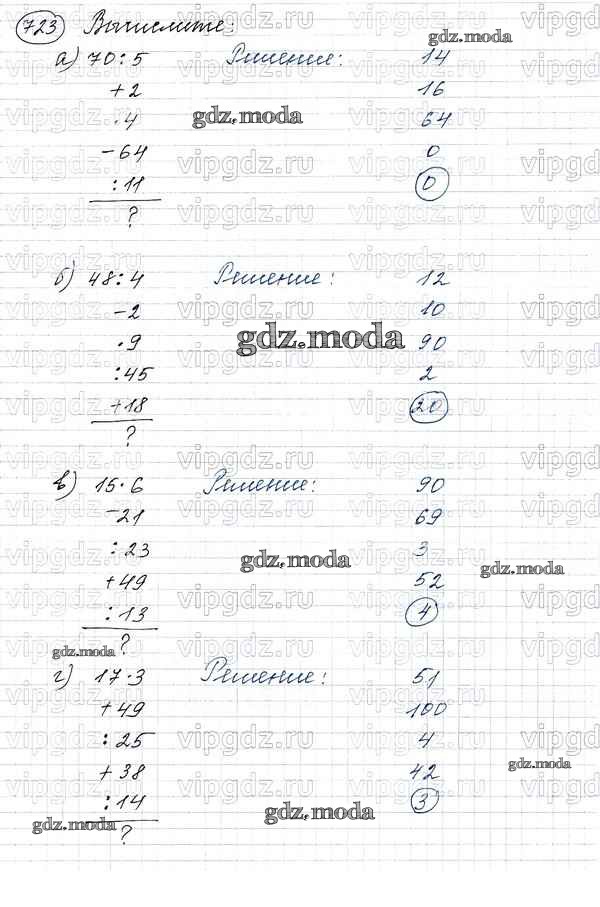 723 Вычислите:
а) 70:5 Решение: 14
+2 16
·4 64
-64 0
:11 0
?
б) 48:4 Решение: 12
-2 10
·9 90
:45 2
+18 20
?
в) 15·6 Решение: 90
-21 69
:23 3
+49 52
:13 4
?
г) 17·3 Решение: 51
+49 100
:25 4
+38 42
:14 3
?
gdz.moda
gdz.moda
gdz.moda
gdz.moda
gdz.moda
gdz.moda
gdz.moda
gdz.moda
gdz.moda
vipgdz.ru